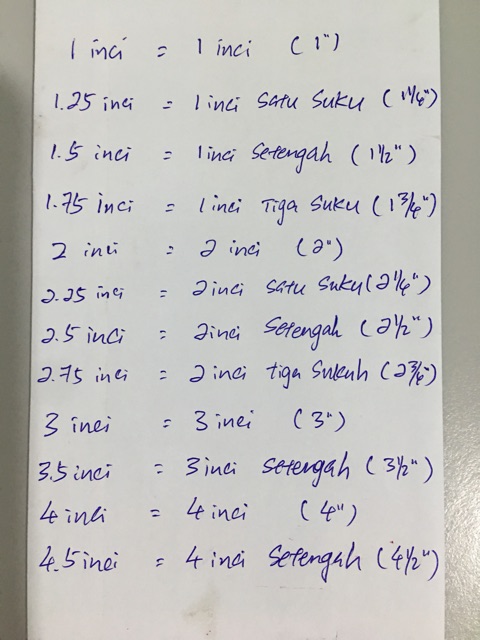 1 inci = 1 inci (1")
1.25 inci = 1 inci satu suku (1 1/4")
1.5 inci = 1 inci setengah (1 1/2")
1.75 inci = 1 inci Tiga suku (1 3/4")
2 inci = 2 inci (2")
2.25 inci = 2 inci satu suku (2 1/4")
2.5 inci = 2 inci setengah (2 1/2")
2.75 inci = 2 inci tiga sukuh (2 3/4")
3 inci = 3 inci (3")
3.5 inci = 3 inci setengah (3 1/2")
4 inci = 4 inci (4")
4.5 inci = 4 inci setengah (4 1/2")